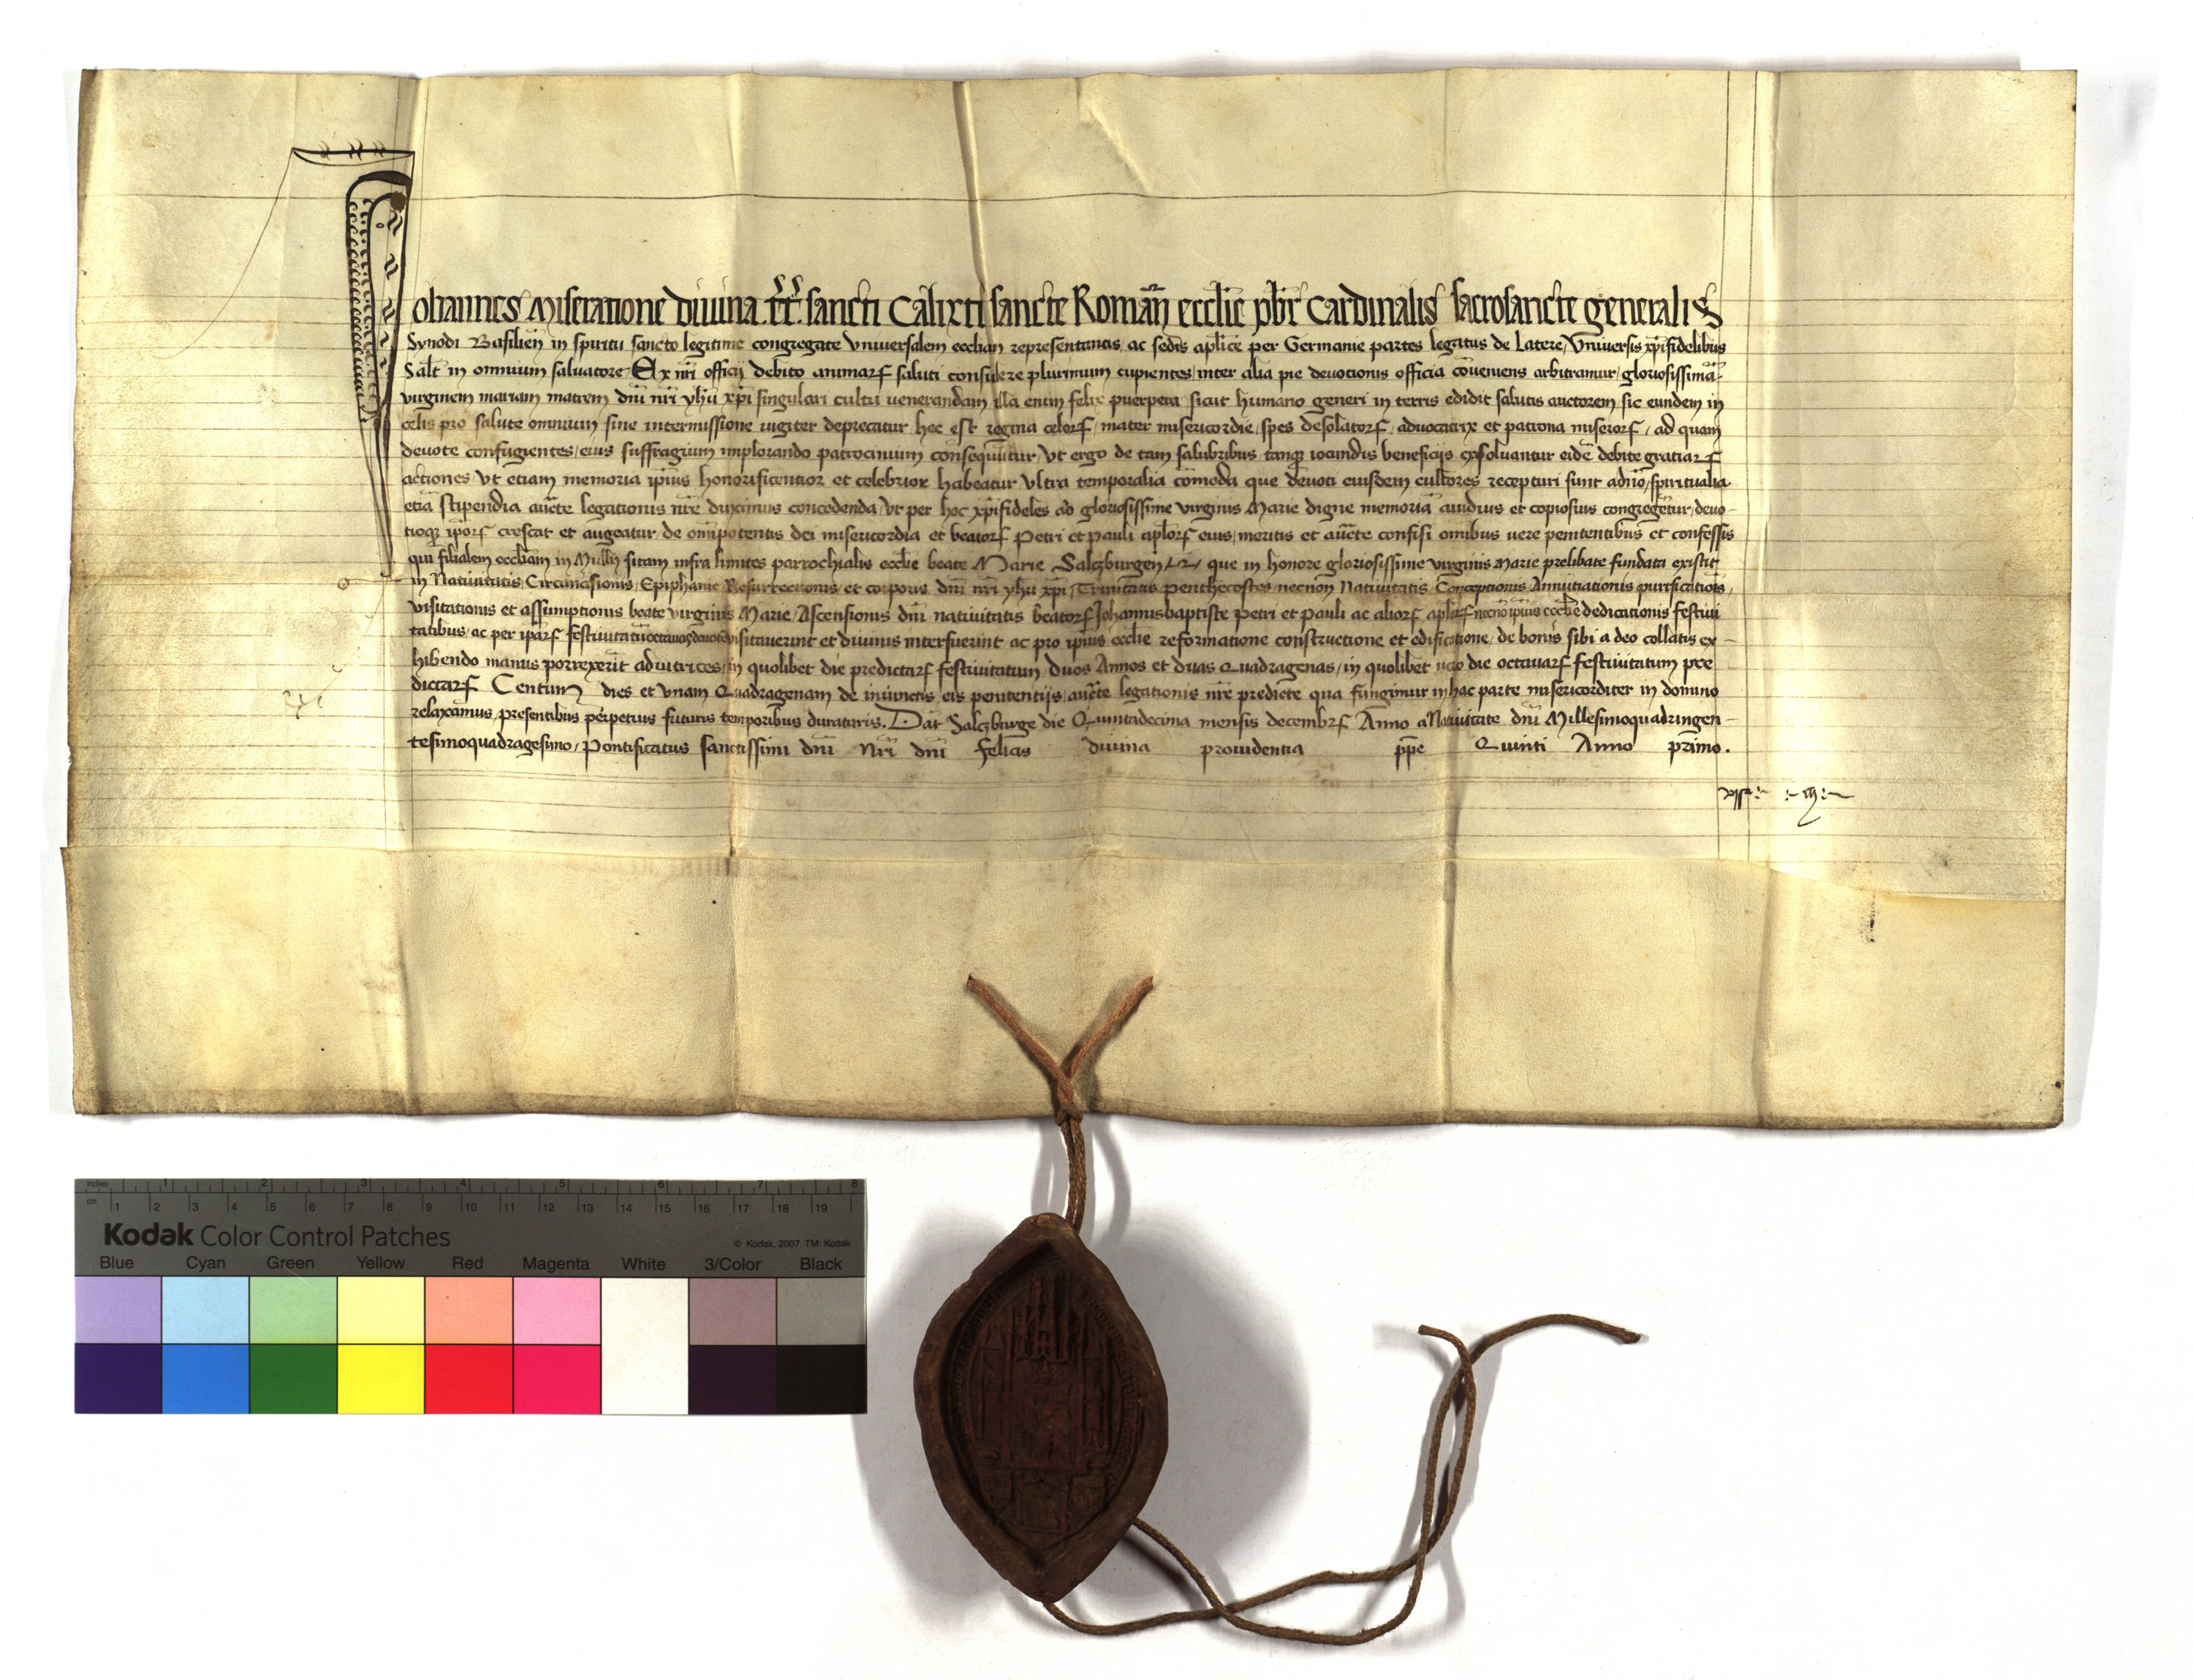 Johannes Miseratione divina .tt. sancti Calixti sancte Roman ecclie pbr Cardinalis sacrosancte generalis
Synodi Basilien in spiritu sancto legitime congregate Vniversalem eccliam representantis, ac sedis aplice per Germanie partes legatus de Latere, Vniversis xpifidelibus
Salt in omnium salvatore. Ex nri officij debito animarum saluti consulere plurimum cupientes, inter alia pie devotionis officia coveniens arbitramur, gloriosissima
virginem mariam matrem dni nri yhu xpi singulari cultu venerandam, illa enim felix puerpera sicut humano generi in terris edidit salutis auctorem, sic eundem in
celis pro salute omnium sine intermissione iugiter deprecatur, hec est regina celorum, mater misericordie, spes desolatorum, advocatrix et patrona miserorum, ad quam
devote confugientes, eius suffragium implorando patrocinium consequntur, Vt ergo de tam salubribus tamque iocundis beneficijs exsolvantur eide debite gratiarum
actiones Vt etiam memoria ipius honorificentior et celebrior habeatur Vltra temporalia comoda que devoti eiusdem cultores recepturi sunt a dno, spiritualia
etia stipendia aucte legationis nre duximus concedenda, Vt per hoc xpifideles ad gloriosissime virginis Marie digne memoria avidius et copiosius congregetur, devo-
tioque iporum crescat et augeatur de omipotentis dei misericordia et beatorum Petri et pauli aplorum eius, meritis et aucte confisi omibus vere penitentibus et confessis
qui filialem eccliam in Mulln sitam infra limites parrochialis ecclie beate Marie Salczburgen que in honore gloriosissime virginis Marie prelibate fundata existit
in Nativitatis, Circumcisionis, Epiphanie Resurrectionis et corporis dni nri yhu xpi, Trinitatis penthecostes necnon Nativitatis Conceptionis Annuntiationis purificationis,
visitationis et assumptionis beate virginis Marie, Ascensionis dni nativitatis beatorum Johannisbaptiste Petri et Pauli ac aliorum aplorum necno ipius ecclie dedicationis festivi
tatibus, ac per iparum festivitatum octavas devote visitaverint et divinis interfuerint ac pro ipius ecclie reformatione constructione et edificatione, de bonis sibi a deo collatis ex-
hibendo manus porrexerit adiutrices, in quolibet die predictarum festivitatum, duos Annos et duas Quadragenas, in quolibet vero die octavarum festivitatum pre
dictarum Centum dies et vnam Quadragenam de iniunctis eis penitentijs, aucte legationis nre predicte qua fungimur in hac parte misericorditer in domino
relaxamus, presentibus perpetuis futuris temporibus duraturis. Dat Salczburge die Quintadecima mensis decembris Anno a Nativitate dni Millesimoquadringen-
tesimoquadragesimo, Pontificatus sanctissimi dni Nri dni felicis divina providentia ppe Quinti Anno primo.
Kodak Color Control Patches
© Kodak, 2007 TM: Kodak
inches 1 2 3 4 5 6 7 8
cm 1 2 3 4 5 6 7 8 9 10 11 12 13 14 15 16 17 18 19
Blue Cyan Green Yellow Red Magenta White 3/Color Black